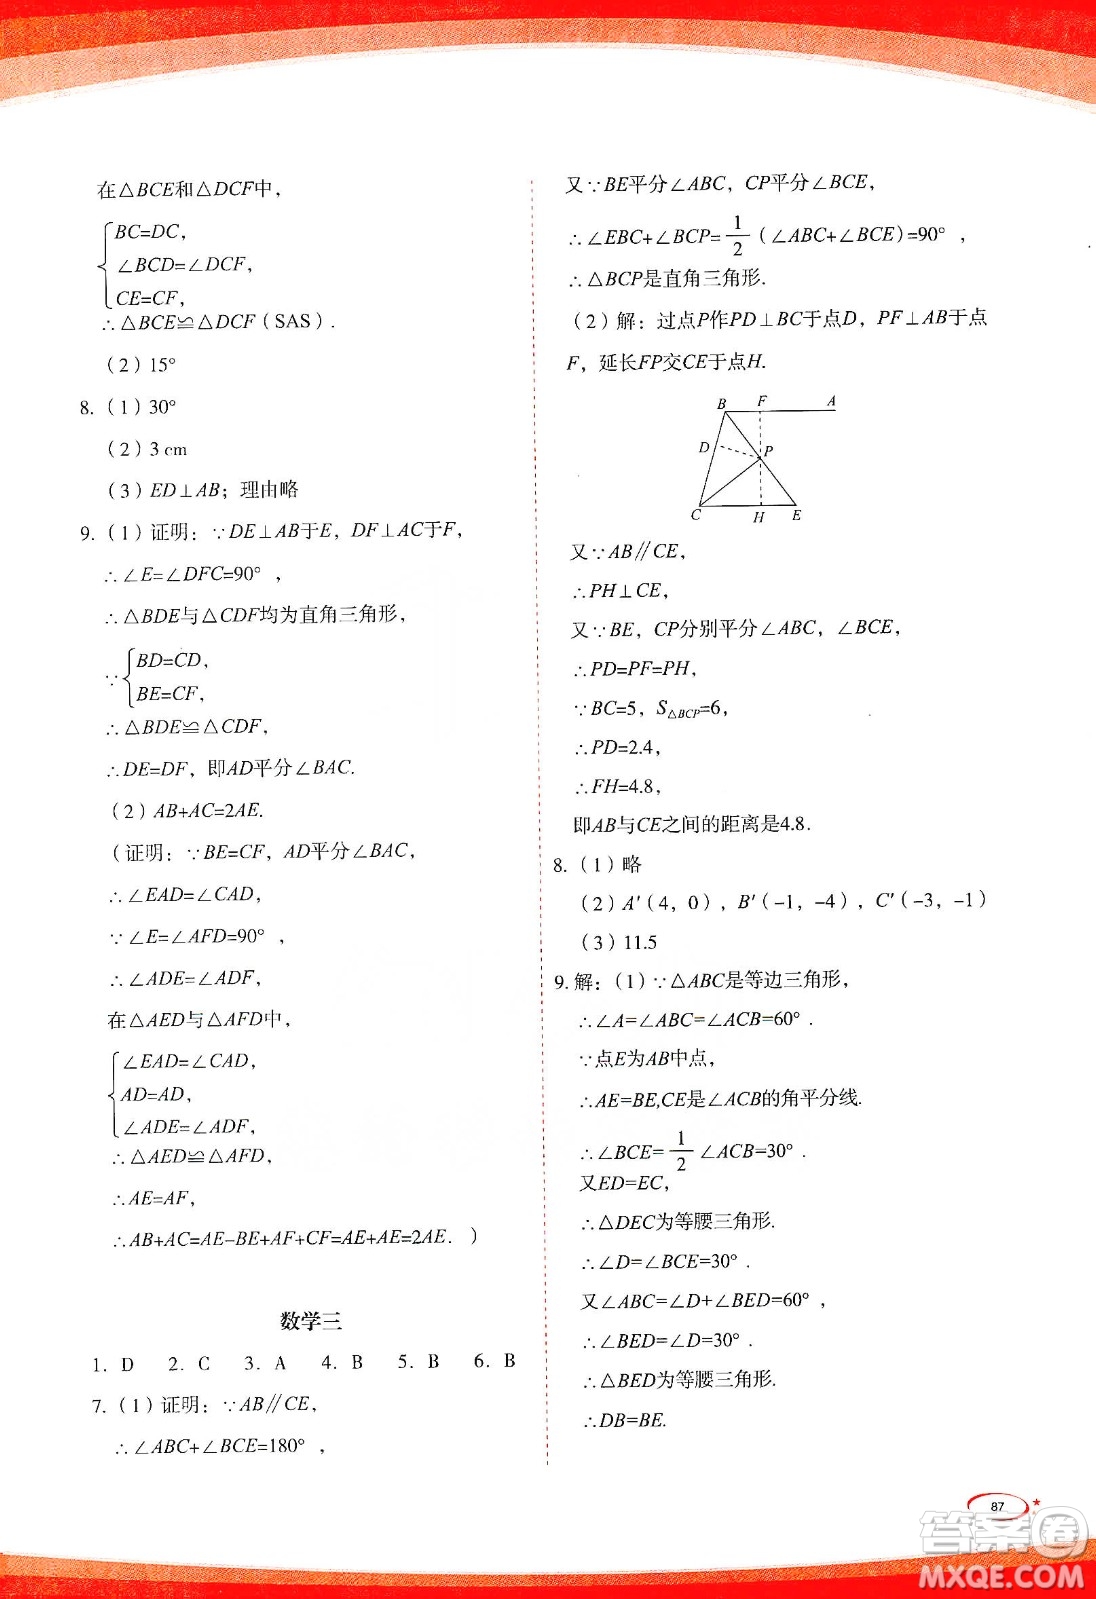 在△BCE和△DCF中，
BC=DC，
∠BCD=∠DCF，
CE=CF，
∴△BCE≌△DCF（SAS）.
（2）15°
8.（1）30°
（2）3 cm
（3）ED⊥AB；理由略
9.（1）证明：∵DE⊥AB于E，DF⊥AC于F，
∴∠E=∠DFC=90°，
∴△BDE与△CDF均为直角三角形，
∵
BD=CD，
BE=CF，
∴△BDE≌△CDF，
∴DE=DF，即AD平分∠BAC.
（2）AB+AC=2AE.
（证明：∵BE=CF，AD平分∠BAC，
∴∠EAD=∠CAD，
∵∠E=∠AFD=90°，
∴∠ADE=∠ADF，
在△AED与△AFD中，
∠EAD=∠CAD，
AD=AD，
∠ADE=∠ADF，
∴△AED≌△AFD，
∴AE=AF，
∴AB+AC=AE−BE+AF+CF=AE+AE=2AE.）
数学三
1. D 2. C 3. A 4. B 5. B 6. B
7.（1）证明：∵AB∥CE，
∴∠ABC+∠BCE=180°，
又∵BE平分∠ABC，CP平分∠BCE，
∴∠EBC+∠BCP=1/2（∠ABC+∠BCE）=90°，
∴△BCP是直角三角形.
（2）解：过点P作PD⊥BC于点D，PF⊥AB于点
F，延长FP交CE于点H.
B F A
D P
C H E
又∵AB∥CE，
∴PH⊥CE，
又∵BE，CP分别平分∠ABC，∠BCE，
∴PD=PF=PH，
∵BC=5，S△BCP=6，
∴PD=2.4，
∴FH=4.8，
即AB与CE之间的距离是4.8.
8.（1）略
（2）A′（4，0），B′（−1，−4），C′（−3，−1）
（3）11.5
9. 解：（1）∵△ABC是等边三角形，
∴∠A=∠ABC=∠ACB=60°.
∵点E为AB中点，
∴AE=BE,CE是∠ACB的角平分线.
∴∠BCE=1/2∠ACB=30°.
又ED=EC，
∴△DEC为等腰三角形.
∴∠D=∠BCE=30°.
又∠ABC=∠D+∠BED=60°，
∴∠BED=∠D=30°.
∴△BED为等腰三角形.
∴DB=BE.
87
答案卷
MXQE.COM